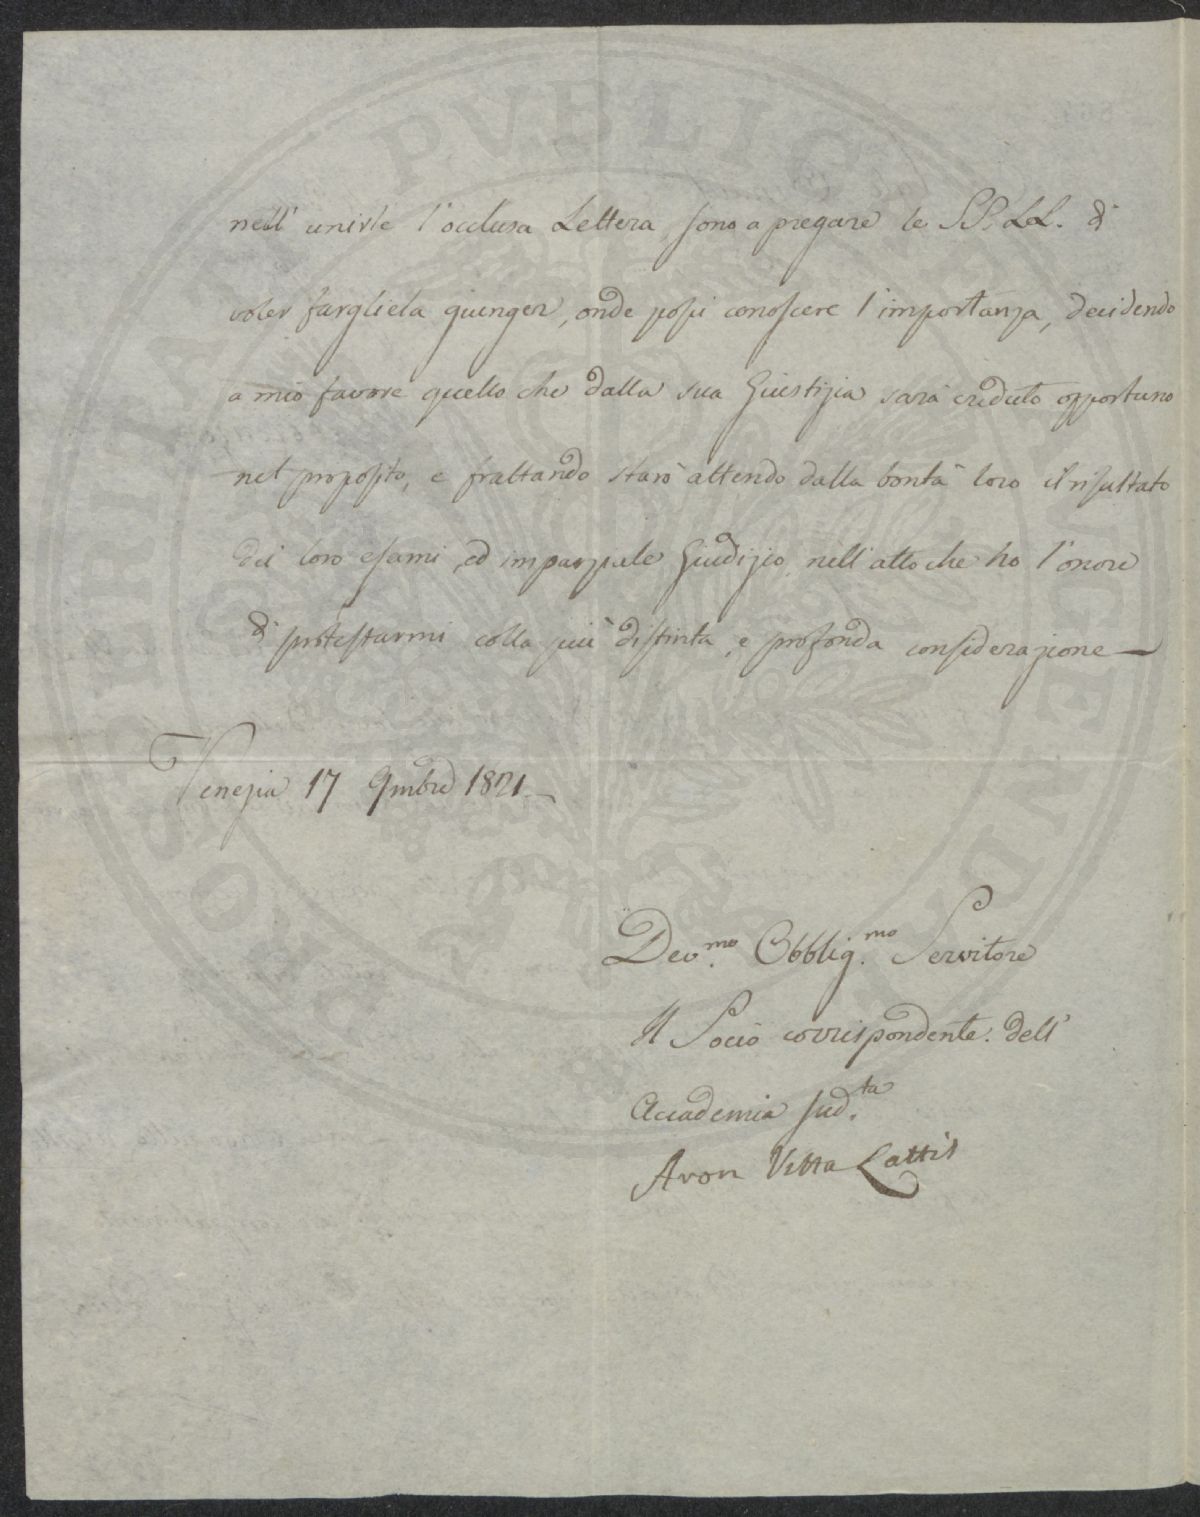 nell' unirle l'occlusa Lettera, sono a pregare le SS. LL. di
voler fargliela giunger, onde possi conoscere l'importanza, decidendo
a mio favore quello che dalla sua Giustizia sarà creduto opportuno
nel proposito, e frattando starò attendo dalla bontà loro il risultato
dei loro esami, ed imparziale Giudizio, nell' atto che ho l'onore
di protestarmi colla più distinta, e profonda considerazione —
Venezia 17 9mbre 1821. —
Dev.mo Obblig.mo Servitore
Il Socio corrispondente dell'
Accademia sud.ta
Aron Vitta Lattis
PVBLICE